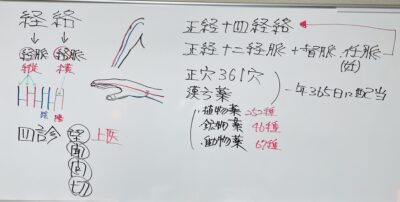 経絡
経脈 絡脈
縦 横
陽 陰
四診 望 上医
聞
問
切
正経十四経絡
正経十二経脈+督脈、任脈
(妊)
正穴361穴
漢方薬
一年365日に配当
・植物薬 252種
・鉱物薬 46種
・動物薬 67種